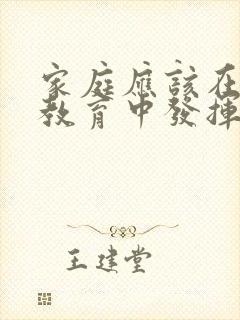 家庭應該在
教育中發揮
王建堂